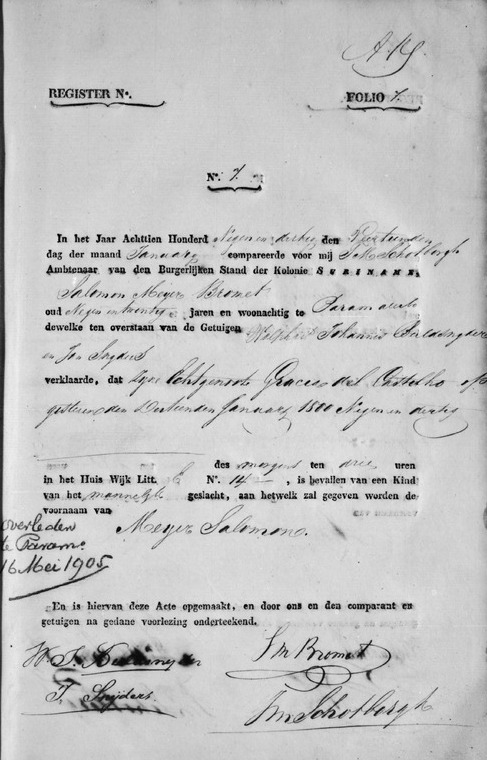 REGISTER No.
FOLIO 7.
No. 7.
In het Jaar Achttien Honderd Negen en dertig den Veertienden
dag der maand Januarij compareerde voor mij Schotborgh
Ambtenaar van den Burgerlijken Stand der Kolonie SURINAME,
Salomon Meyer Bromet
oud Negen en twintig jaren en woonachtig te Paramaribo
dewelke ten overstaan van de Getuigen Johannes
en Jan Snyders
verklaarde, dat zyne Echtgenoote Gracia del Castilho op
gisteren den Dertienden Januarij 1800 Negen en dertig
des morgens ten drie uren
in het Huis Wijk Litt. No. 14, is bevallen van een Kind
van het mannelyk geslacht, aan hetwelk zal gegeven worden de
voornaam van Meyer Salomon.
overleden
te Param:
16 Mei 1905
En is hiervan deze Acte opgemaakt, en door ons en den comparant en
getuigen na gedane voorlezing onderteekend.
Sm Bromet
J. Snyders
Schotborgh